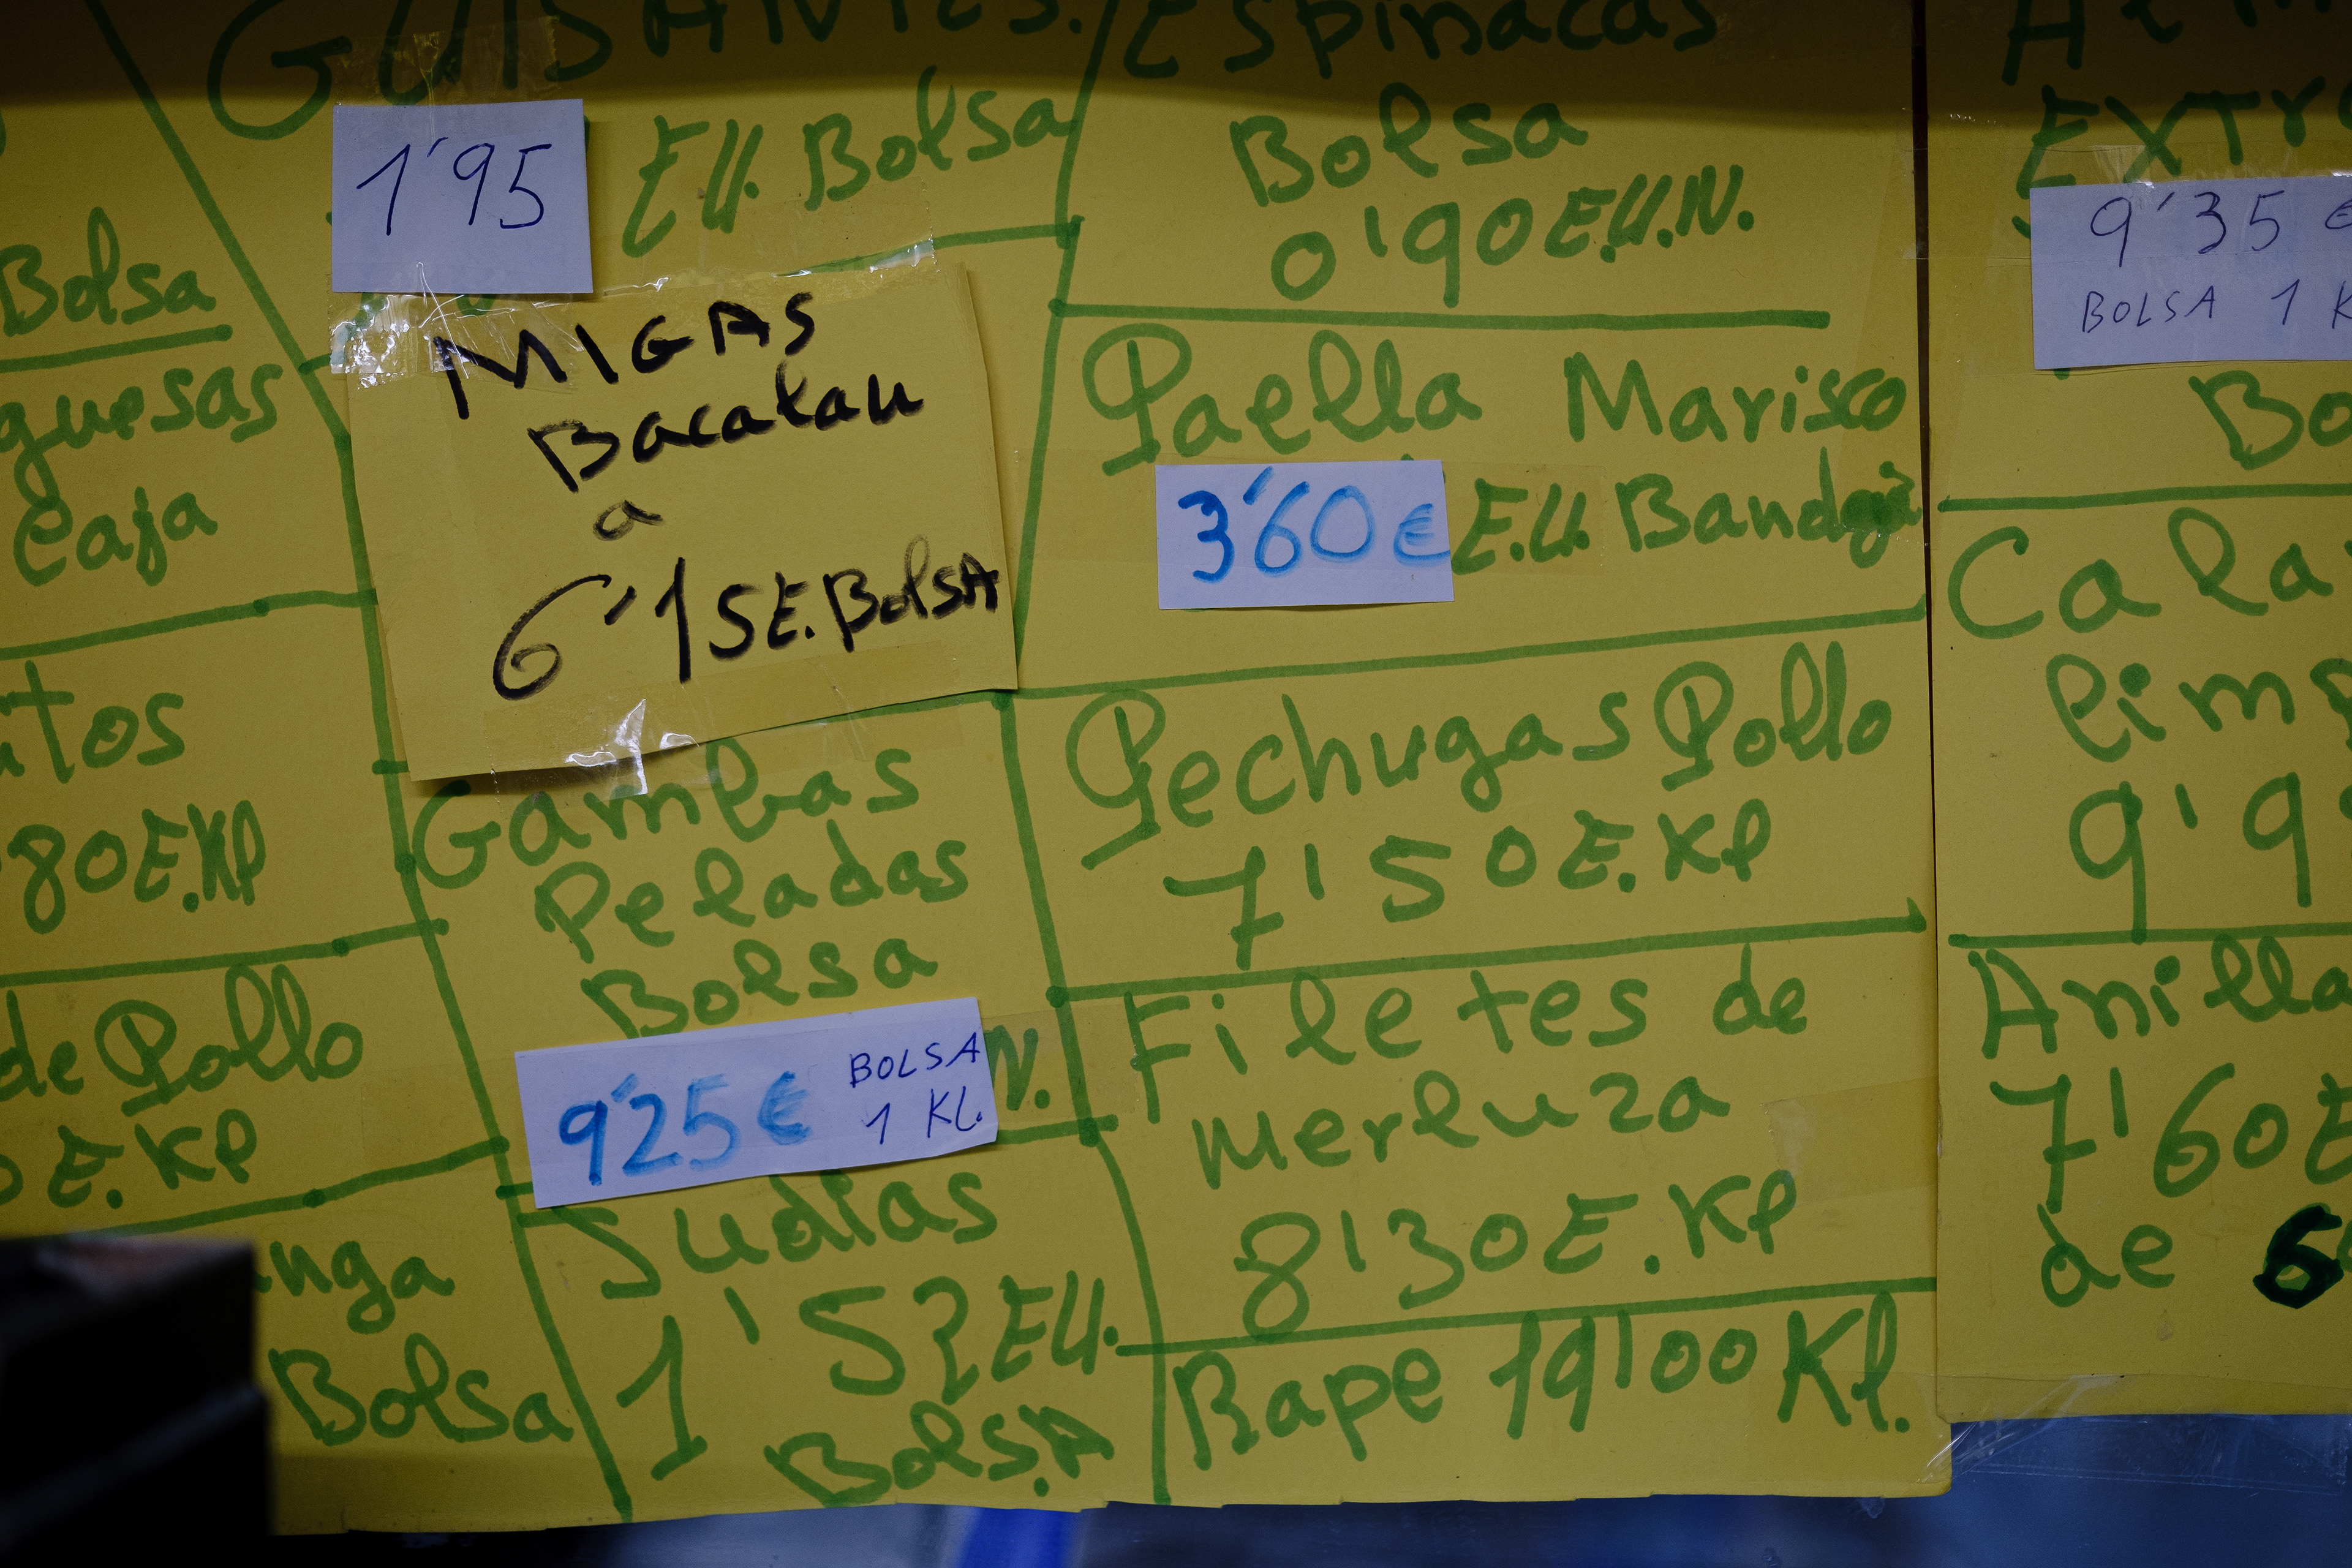 Bolsa
guesas
Caja
tos
80E.Kl
de Pollo
E.Kl
nga
Bolsa
GUISANTES.
1'95 EU. Bolsa
MIGAS
Bacalau
a
6'15E.BolSA
Gambas
Peladas
Bolsa
9'25€ BOLSA
1 KL.
N.
Judias
1'52EU.
BolSA
Espinacas
Bolsa
0'90E.U.N.
Paella Marisco
3'60€ E.U. Bandeja
Pechugas Pollo
7'50E.Kl
Filetes de
Merluza
8'30E.Kl
Rape 19'00Kl.
EXTR
9'35 €
BOLSA 1 K
Bo
Cala
limp
9'9
Anilla
7'60E
de 6